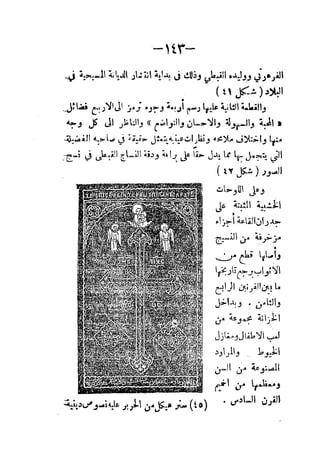 —١٤٣—
الفرعوني ووليده القبطي وذلك في بداية انتشار الديانة المسيحية في
البلاد ( شكل ٤١ )
والقطعة الثانية عليها رسم أربعة وجوه ترمز الى الاربع فضائل
« المحبة والسهولة والاحسان والتواضع » والناظر الى كل وجه
منها واختلاف ملامحه ونظرات عينيه يتمثل حقيقة في صاحبه الفضيلة
التي يتجمل بها مما يدل حقاً على براعة ودقة النساج القبطي في نسج
الصور ( شكل ٤٢ )
وعلى اللوحات
الخشبية المثبتة على
جدران القاعة أجزاء
مزخرفة من النسيج
وأصلها قطع من
الاثواب يرجع تاريخها
ما بين القرنين الرابع
والثامن . وبداخل
الخزانة مجموعة من
لعب الاطفال ومغازل
الخيوط والمراود
المصنوعة من السن
ومعظمها من اخميم
القرن السادس .
(٤٥) ستر هيكل من الحرير عليه نصوص دينية